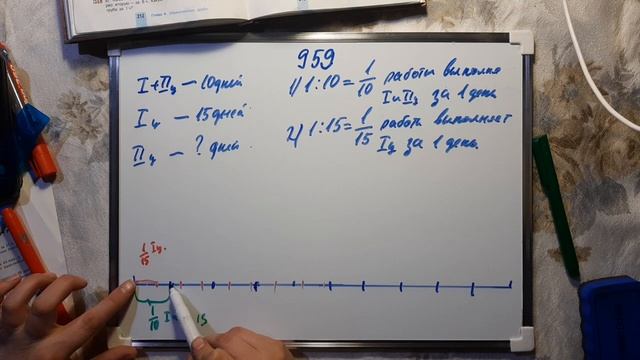 959
I + IIц — 10 дней
Iц — 15 дней
IIц — ? дней
1) 1:10 = 1/10 работы выполня
I и IIц за 1 день
2) 1:15 = 1/15 работы выполняет
Iц за 1 день
1/15 Iц.
1/10 I
15
212